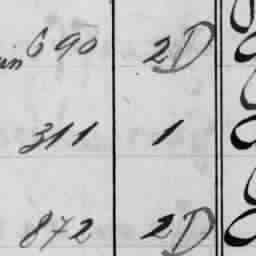 690 2D
311 1
872 2D